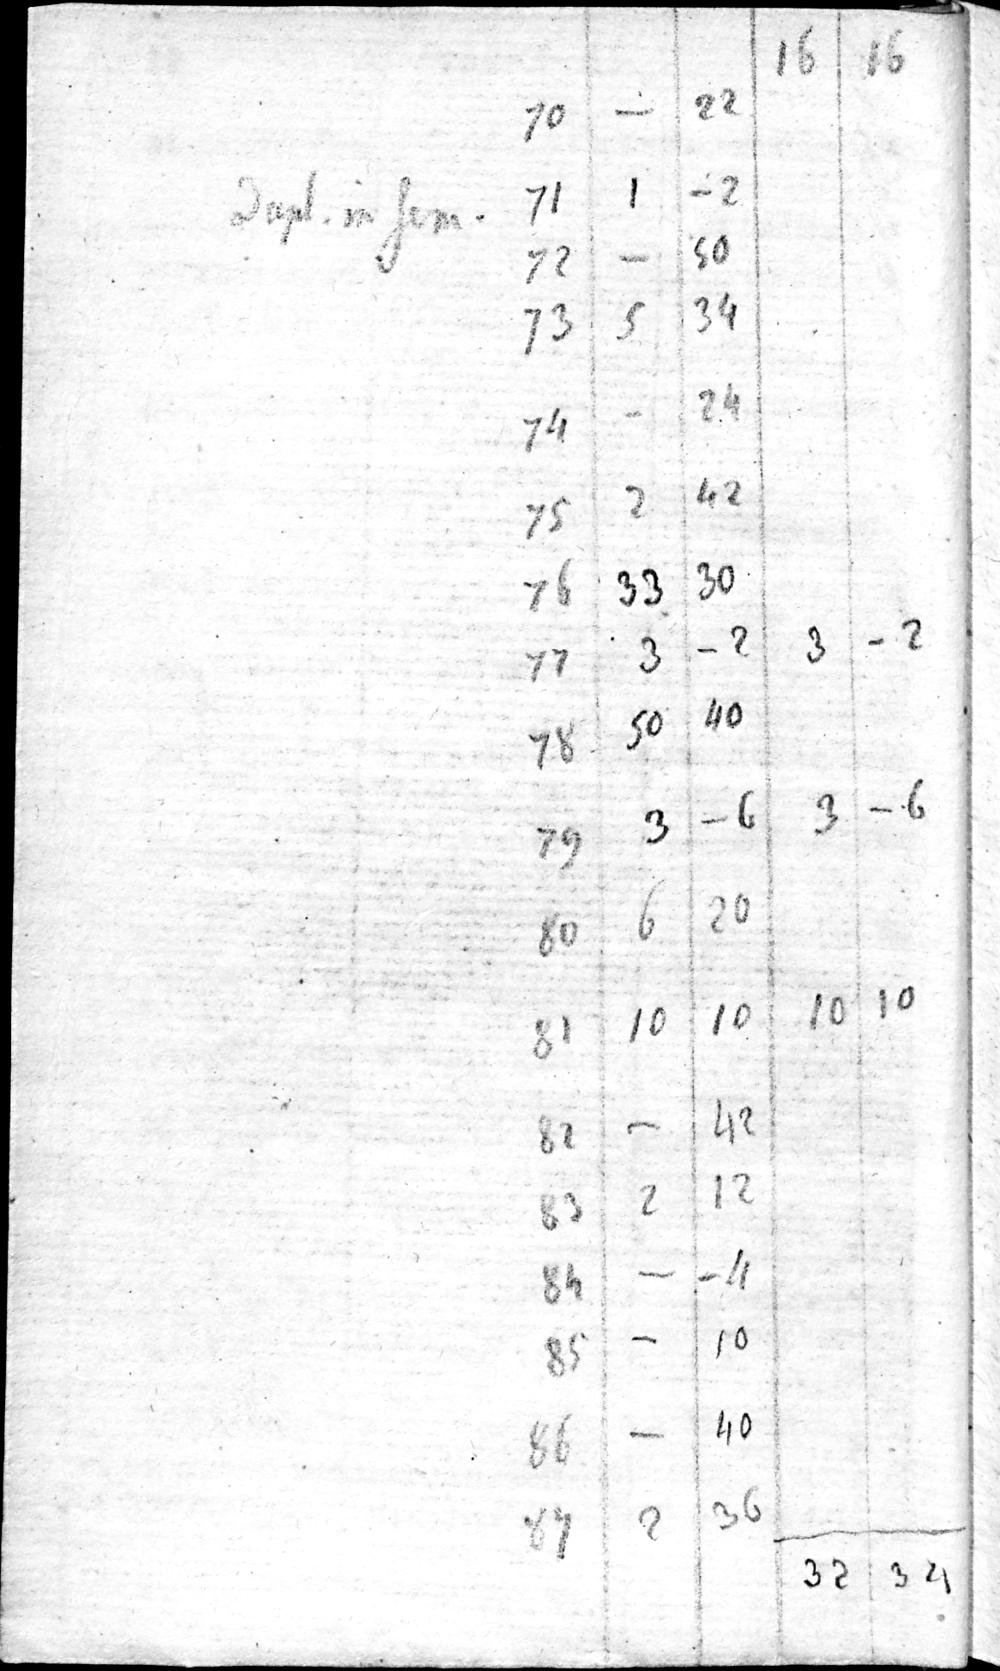 16 16
70 — 22
Dupl. in hem. 71 1 -2
72 — 50
73 5 34
74 - 24
75 2 42
76 33 30
77 3 -2 3 -2
78 50 40
79 3 -6 3 -6
80 6 20
81 10 10 10 10
82 — 42
83 2 12
84 — -4
85 — 10
86 — 40
87 2 36
32 34